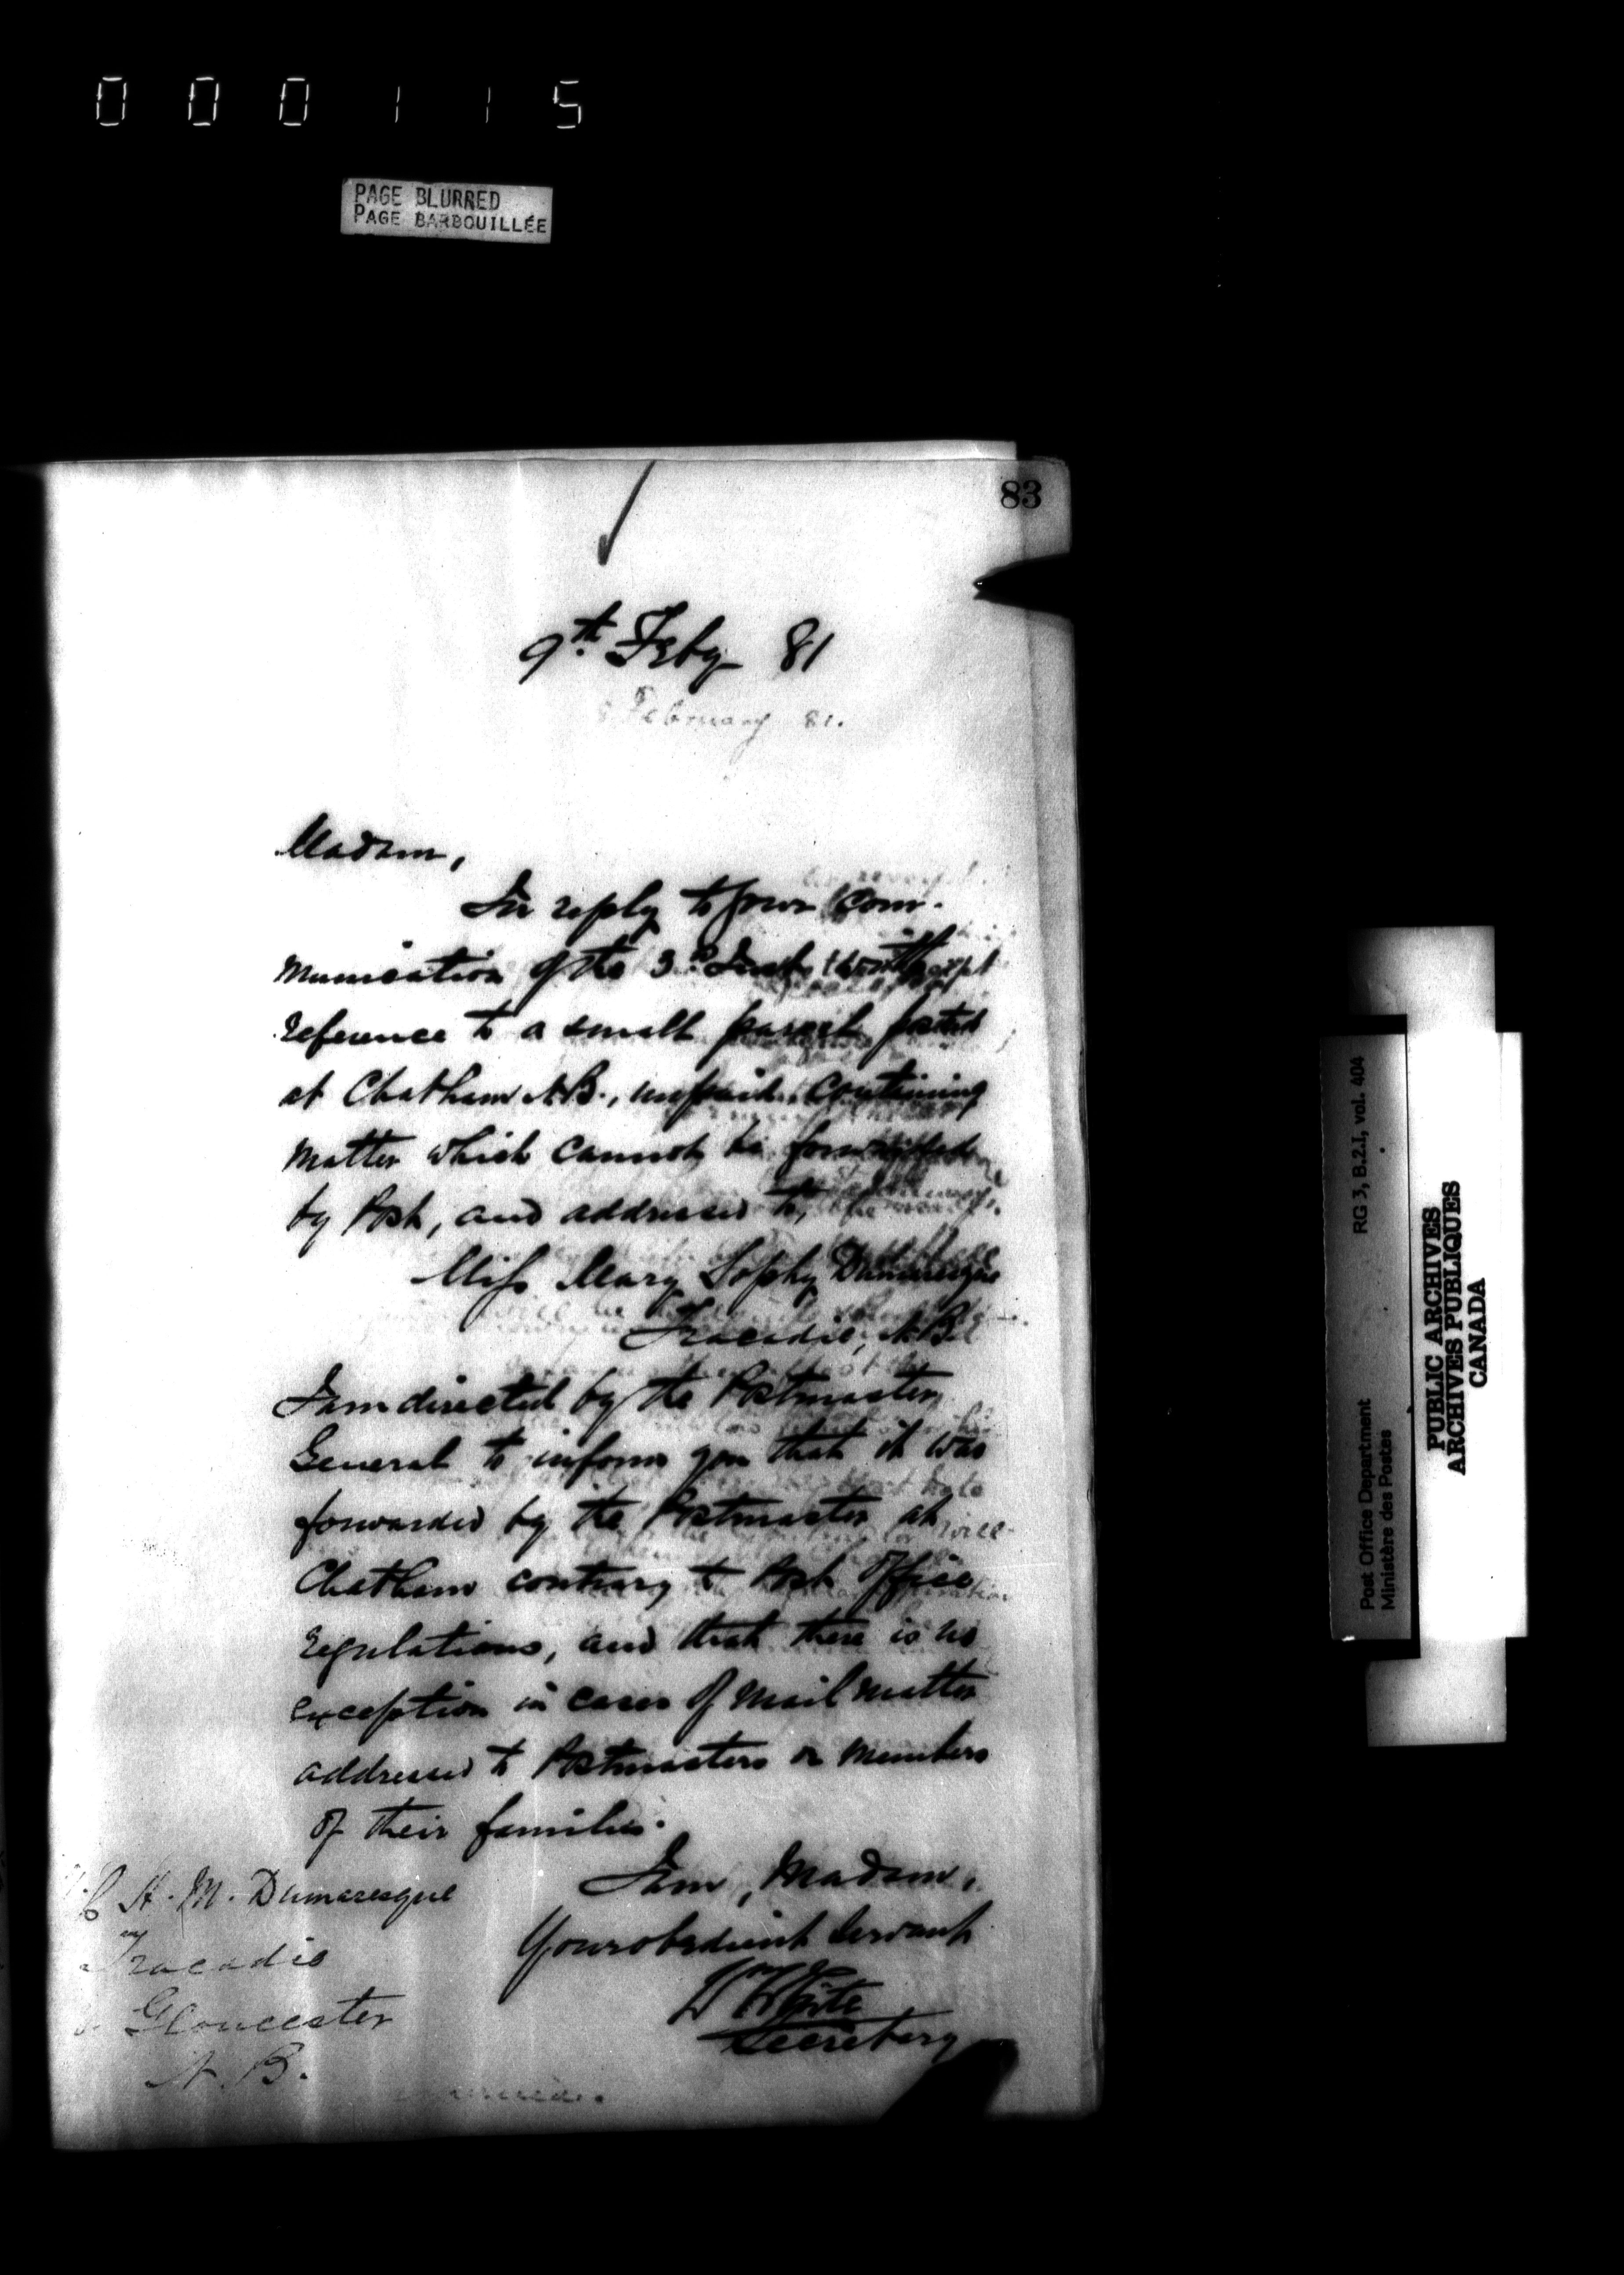 000115
PAGE BLURRED
PAGE BARBOUILLÉE
83
9th Feby 81
8 February 81.
Madam,
In reply to your Com-
munication of the 3rd Inst, with
reference to a small parcel posted
at Chatham N.B., unpaid, containing
matter which cannot be forwarded
by Post, and addressed to,
Miss Mary Sophy Dumaresque
Tracadie, N.B.
I am directed by the Postmaster
General to inform you that it was
forwarded by the Postmaster at
Chatham contrary to Post Office
regulations, and that there is no
exception in cases of mail matter
addressed to Postmasters or members
of their families.
I am, Madam,
Your obedient Servant
Wm White
Secretary
H. M. Dumaresque
Tracadie
Gloucester
N.B.
Post Office Department RG 3, B.2.I, vol. 404
Ministère des Postes
PUBLIC ARCHIVES
ARCHIVES PUBLIQUES
CANADA